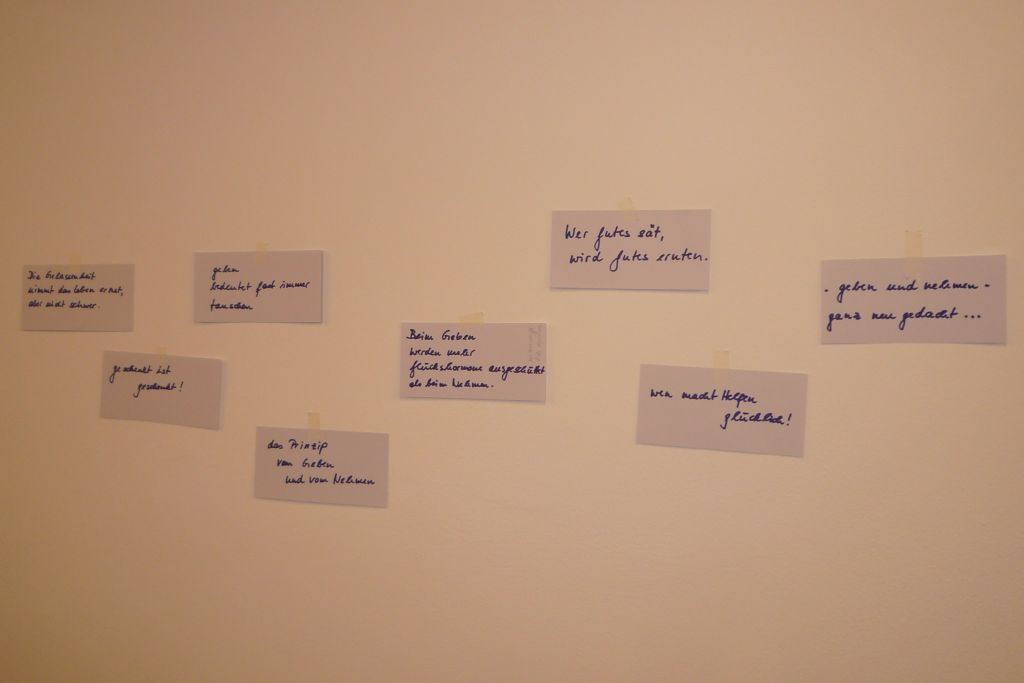 Die Gelassenheit
nimmt das Leben ernst,
aber nicht schwer.
geschenkt ist
geschenkt!
geben
bedeutet fast immer
tauschen
das Prinzip
vom Geben
und vom Nehmen
Beim Geben
werden mehr
Glückshormone ausgeschüttet
als beim Nehmen.
Wer gutes sät,
wird gutes ernten.
wen macht Helfen
glücklich!
- geben und nehmen -
ganz neu gedacht ...